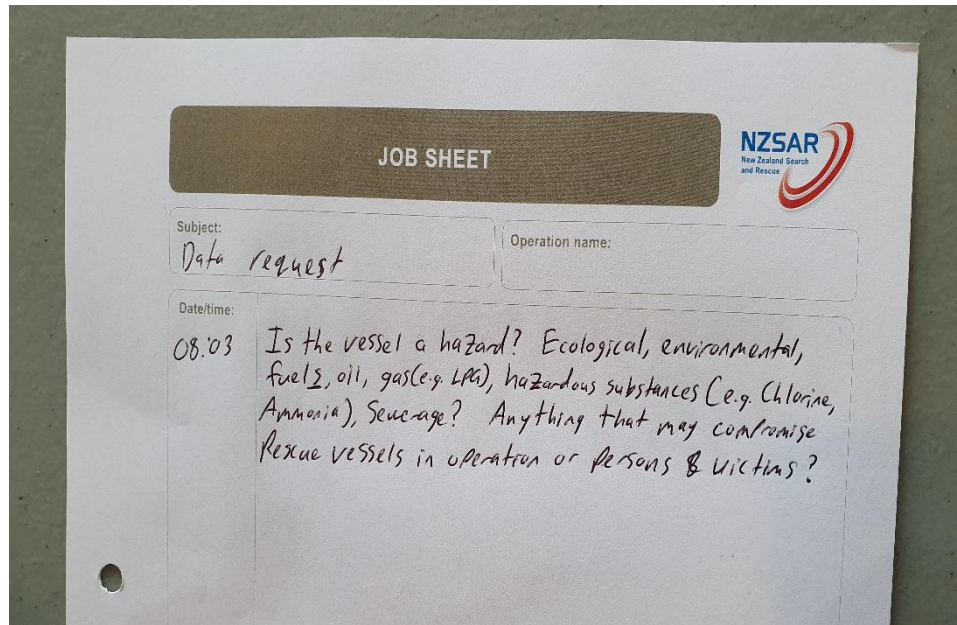 JOB SHEET
NZSAR
New Zealand Search
and Rescue
Subject:
Data request
Operation name:
Date/time:
08:03
Is the vessel a hazard? Ecological, environmental,
fuels, oil, gas(e.g. LPG), hazardous substances (e.g. Chlorine,
Ammonia), Sewerage? Anything that may compromise
Rescue vessels in operation or persons & victims?